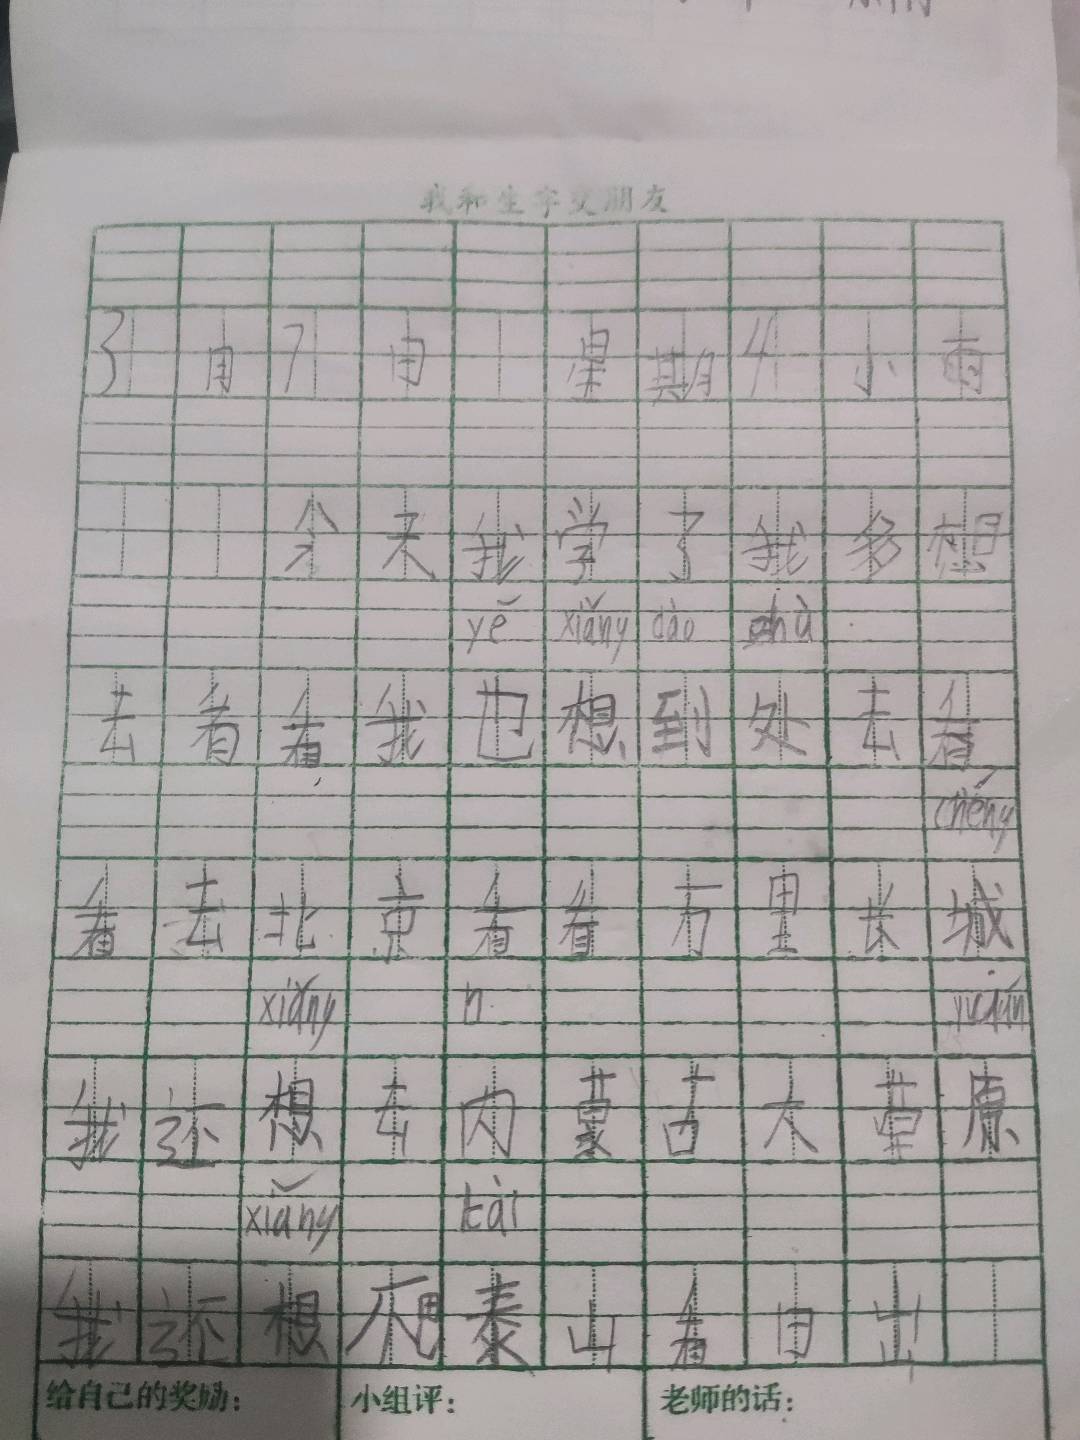 我和生字交朋友
3月7日 星期4小雨
今天我学了我多想
yě xiǎng dào chù
去看看我也想到处去看
chéng
看去北京看看万里长城
xiǎng n yuán
我还想去内蒙古大草原
xiǎng tài
我还想爬泰山看日出
给自己的奖励： 小组评： 老师的话：